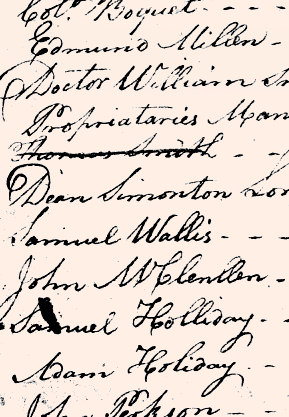 Colo. Boquet - - - -
Edmund Millen -
Doctor William Sm
Propriataries Man
Thomas Smith - -
Dean Simonton Lon
Samuel Wallis - - -
John McClenllen -
Samuel Holliday - -
Adam Holiday -
John - -